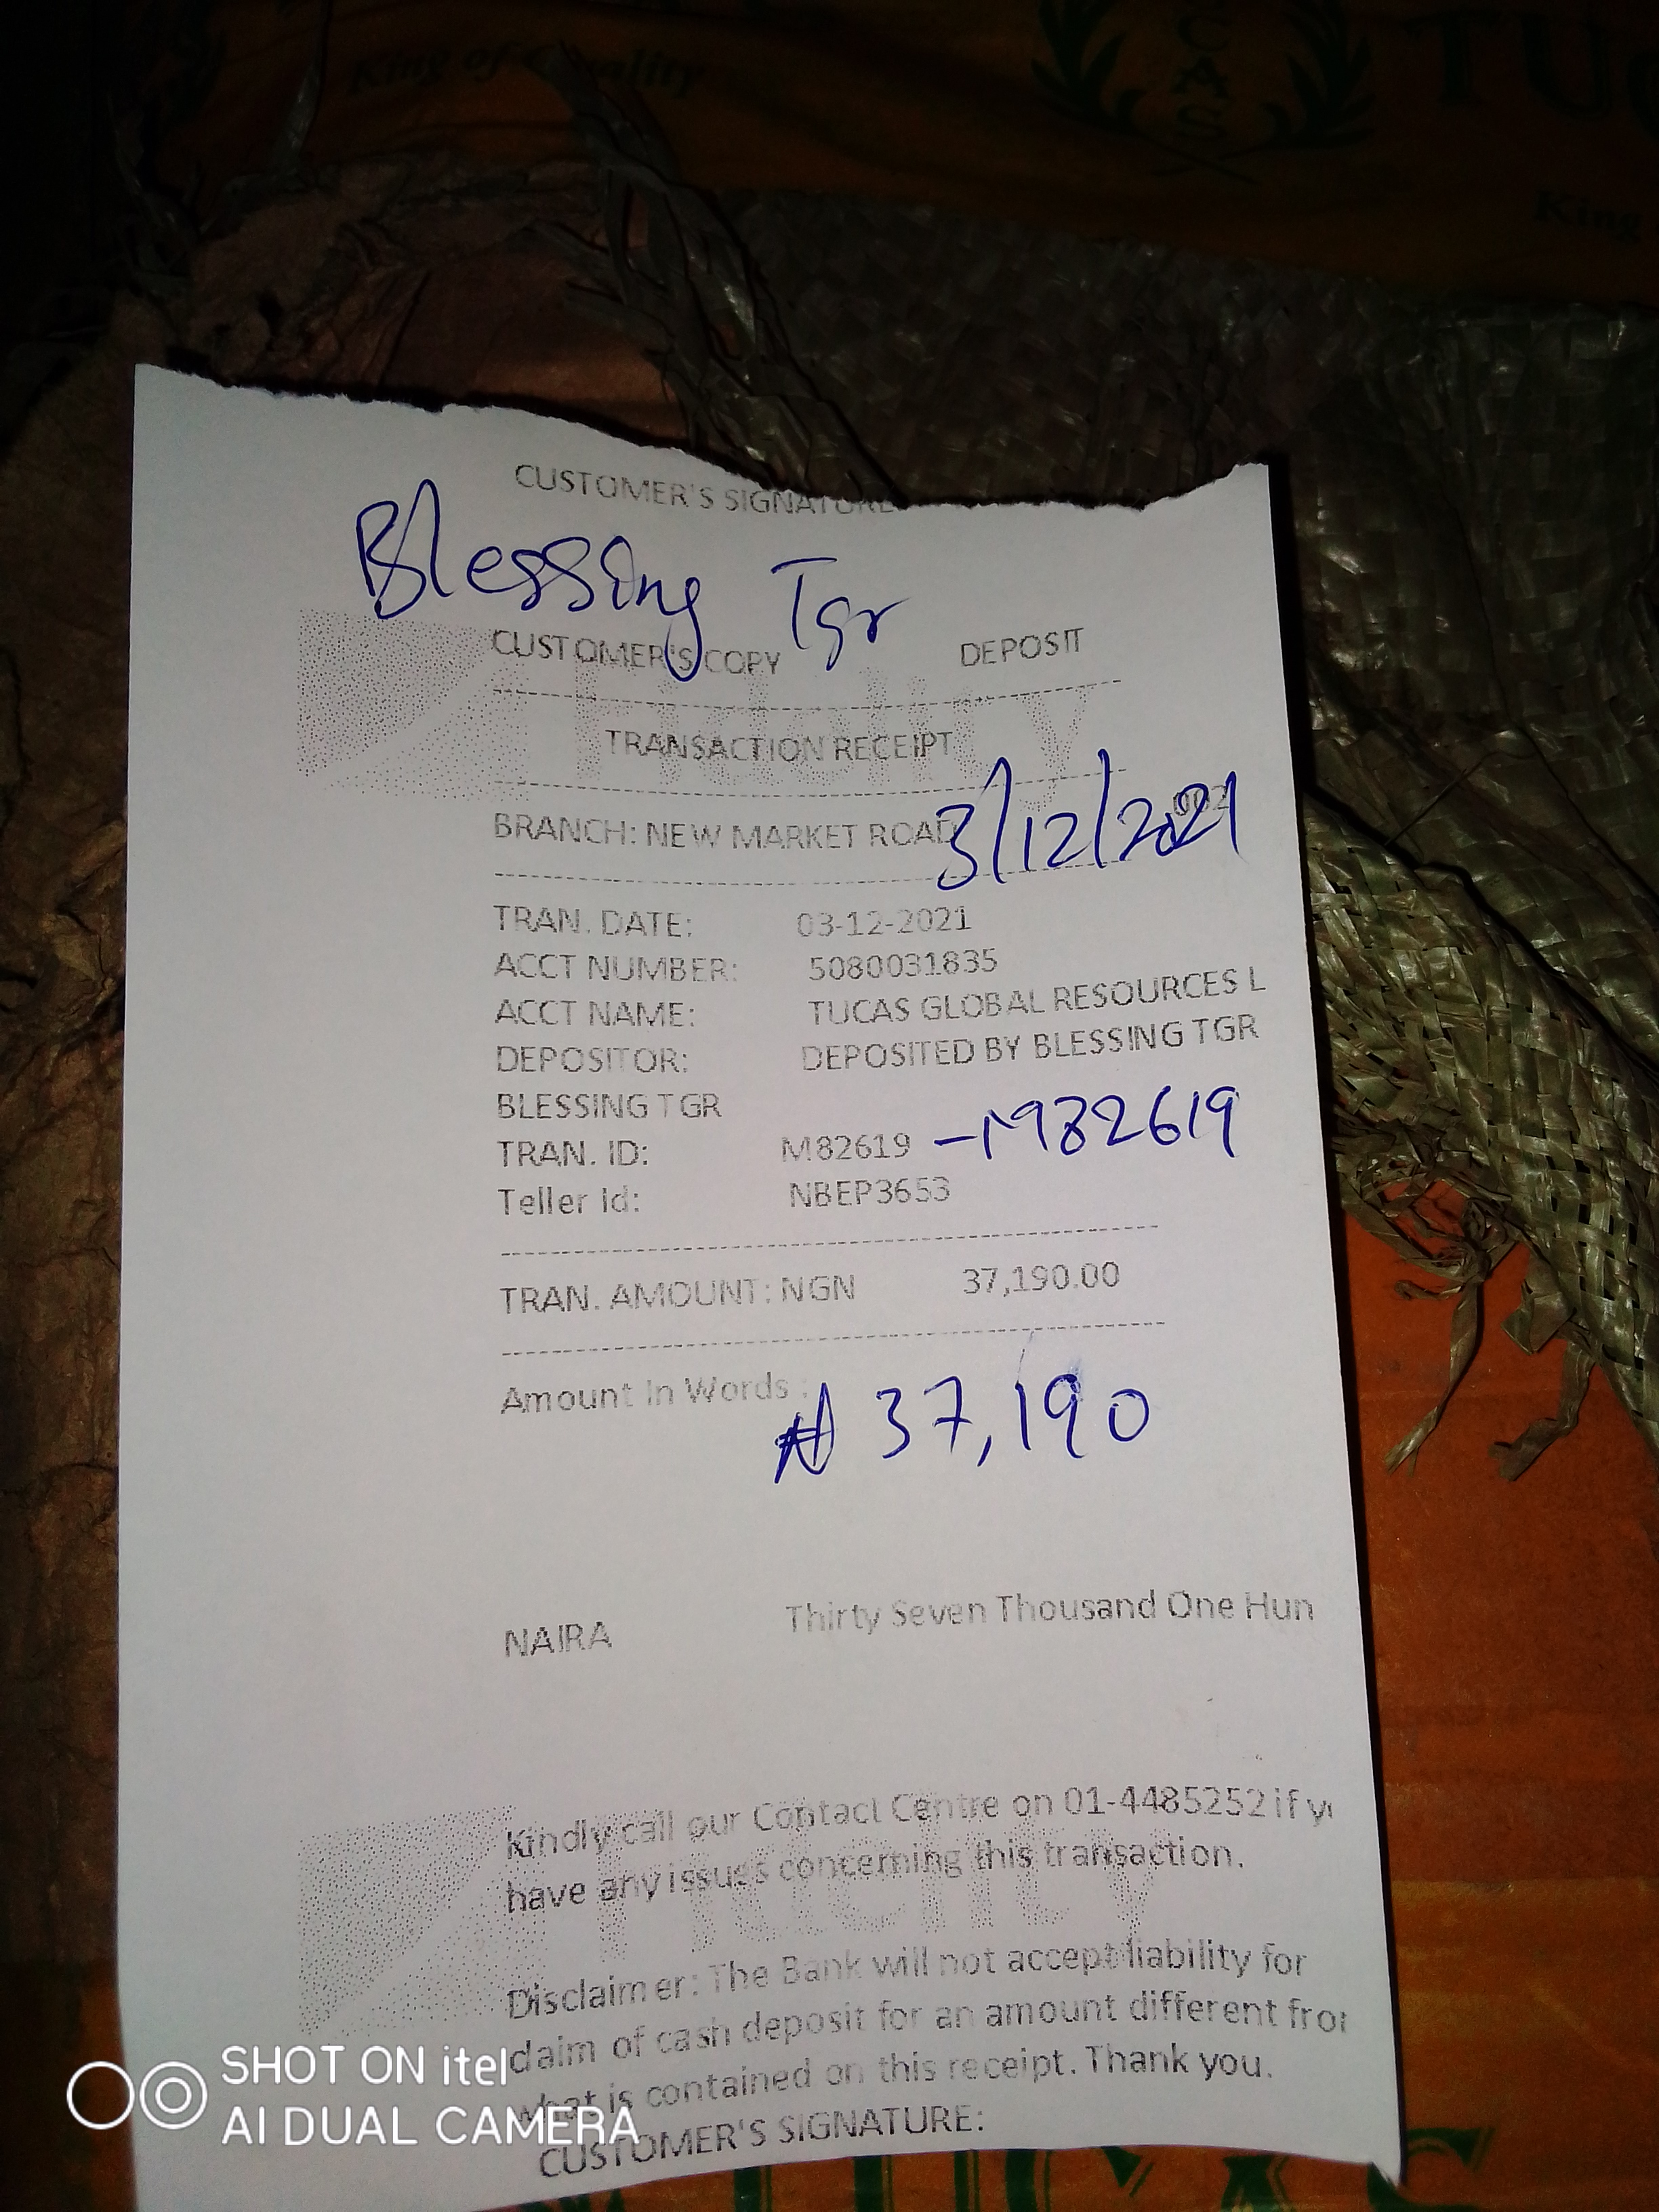 King of Quality
TUCAS
TUC
King
CUSTOMER'S SIGNATURE
Blessing Tgr
CUSTOMER'S COPY DEPOSIT
Fidelity
TRANSACTION RECEIPT
BRANCH: NEW MARKET ROAD 3/12/2021
TRAN. DATE: 03-12-2021
ACCT NUMBER: 5080031835
ACCT NAME: TUCAS GLOBAL RESOURCES L
DEPOSITOR: DEPOSITED BY BLESSING TGR
BLESSING TGR
TRAN. ID: M82619 - M82619
Teller Id: NBEP3653
TRAN. AMOUNT: NGN 37,190.00
Amount In Words :
₦ 37,190
NAIRA Thirty Seven Thousand One Hun
Kindly call our Contact Centre on 01-4485252 if y
have any issues concerning this transaction.
Fidelity
Disclaimer: The Bank will not accept liability for
claim of cash deposit for an amount different fro
what is contained on this receipt. Thank you.
CUSTOMER'S SIGNATURE:
SHOT ON itel
AI DUAL CAMERA
TUCAS